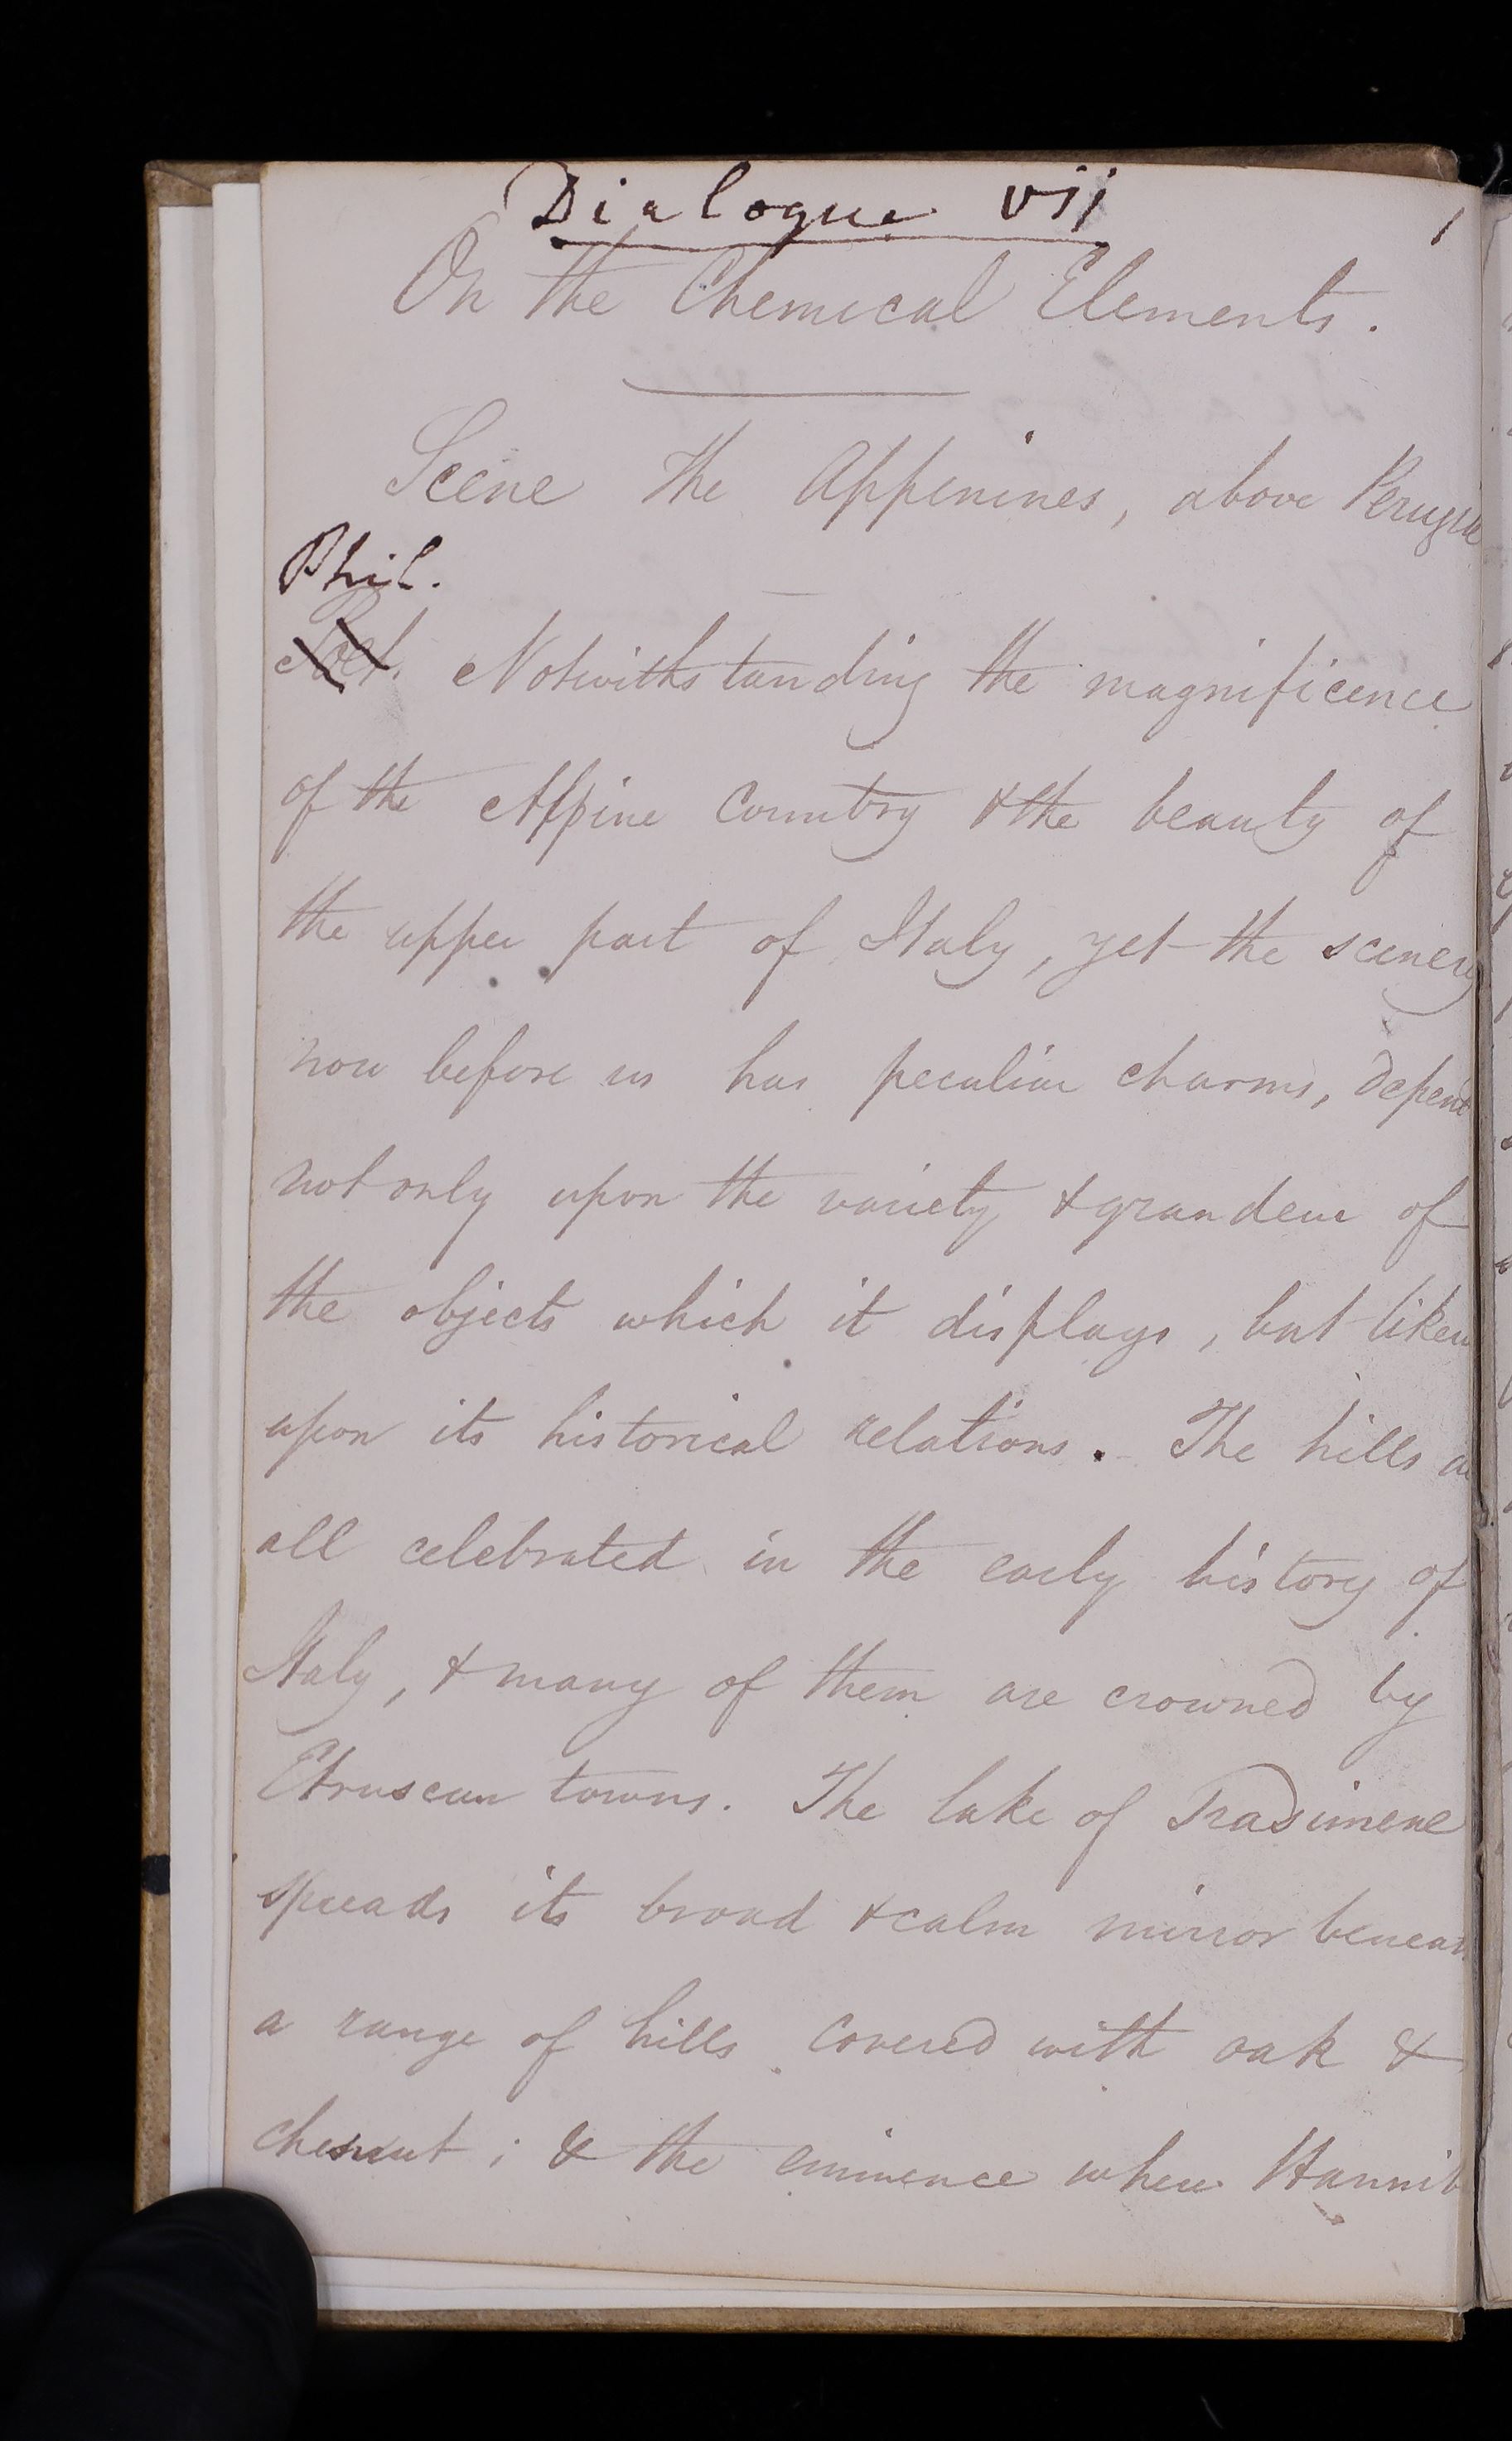 Dialogue vii
1
On the Chemical Elements.
Scene the Appenines, above Perugia
Phil.
Poet. Notwithstanding the magnificence
of the Alpine Country & the beauty of
the upper part of Italy, yet the scenery
now before us has peculiar charms, depend
not only upon the variety & grandeur of
the objects which it displays, but likew
upon its historical relations. The hills a
all celebrated in the early history of
Italy, & many of them are crowned by
Etruscan towns. The lake of Trasimene
spreads its broad & calm mirror beneath
a range of hills covered with oak &
chesnut; & the eminence where Hannib